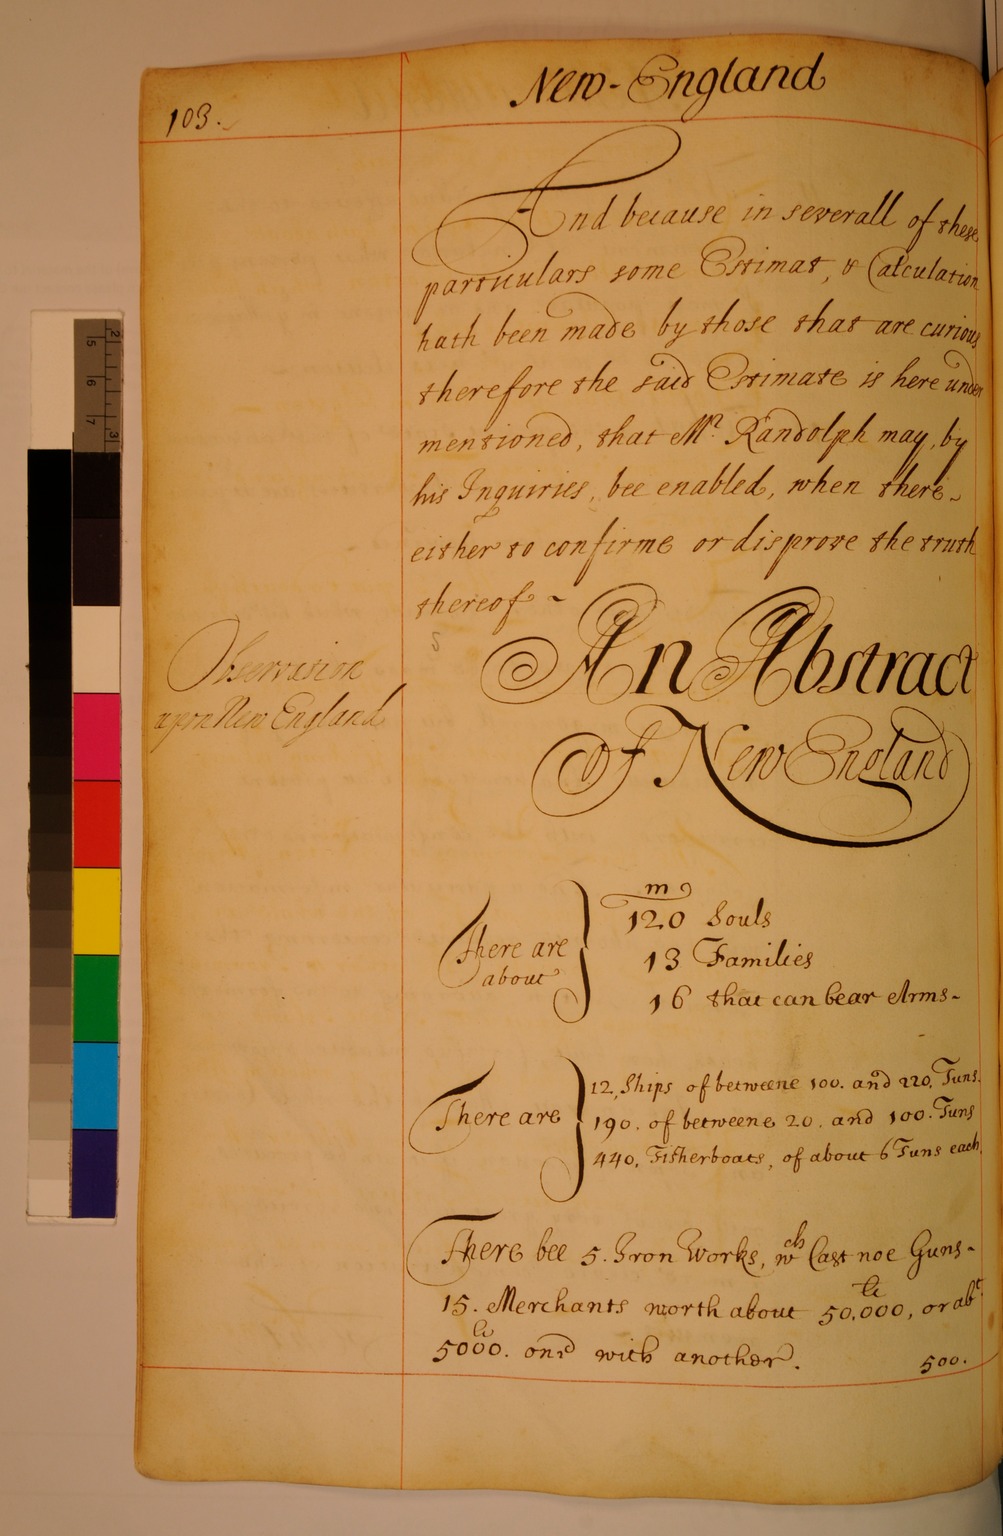 New-England
103.
And because in severall of these
particulars some Estimat, & Calculation
hath been made by those that are curious
therefore the said Estimate is here under
mentioned, that Mr. Randolph may, by
his Inquiries, bee enabled, when there
either to confirme or disprove the truth
thereof ~
Observation
upon New England
An Abstract
Of New England
There are about
m
120 Souls
13 Families
16 that can bear Arms-
There are
12, Ships of betweene 100. and 220, Tuns.
190. of betweene 20. and 100. Tuns
440. Fisherboats, of about 6 Tuns each.
There bee 5. Iron Works, wch Cast noe Guns-
15. Merchants worth about 50,000, li or abt
5000. li one with another.
500.
2 3
5 6 7